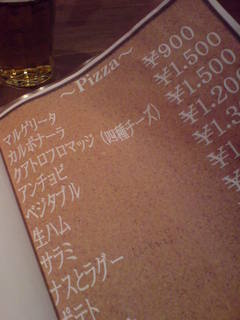 ～Pizza～
マルゲリータ ¥900
カルボナーラ ¥1.500
クアトロフロマッジ（四種チーズ） ¥1.500
アンチョビ ¥1.200
ベジタブル
生ハム
サラミ
ナスとラグー
ポテト